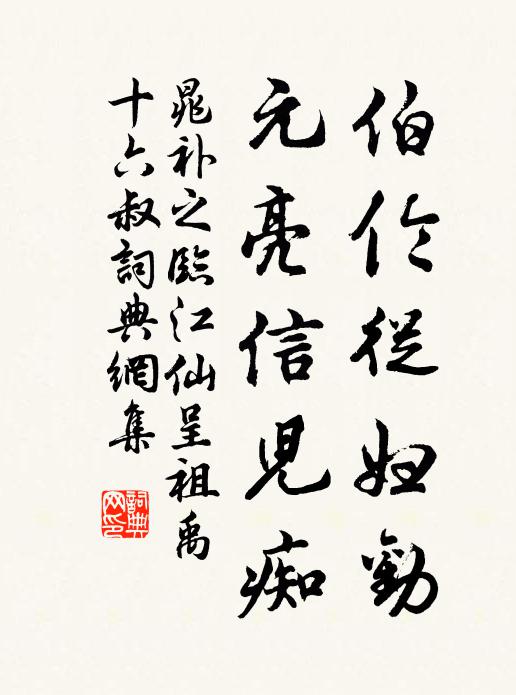 伯伶從婦勸
元亮信兒痴
晁補之臨江仙呈祖禹
十六叔詞典網集
詞典網印